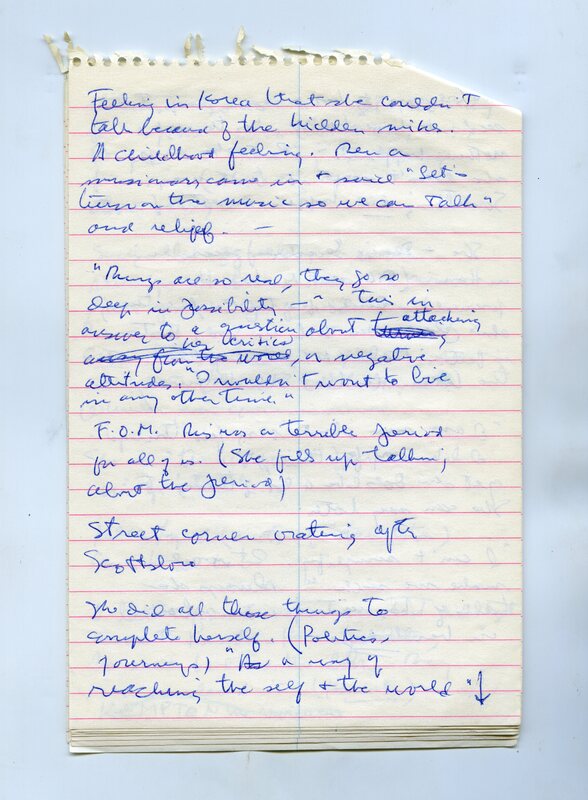 Feeling in Korea that she couldn't
talk because of the hidden mikes.
A childhood feeling. Then a
missionary came in + said "Let's
turn on the music so we can talk"
and relief. —
"Things are so real, they go so
deep in possibility —" this in
answer to a question about attacking
her critics
away from the world, or negative
attitudes. "I wouldn't want to live
in any other time."
F.O.M. This was a terrible period
for all of us. (She fills up talking
about the period)
Street corner orating after
Scottsboro
She did all these things to
complete herself. (Politics,
journeys) "As a way of
reaching the self + the world" ↓